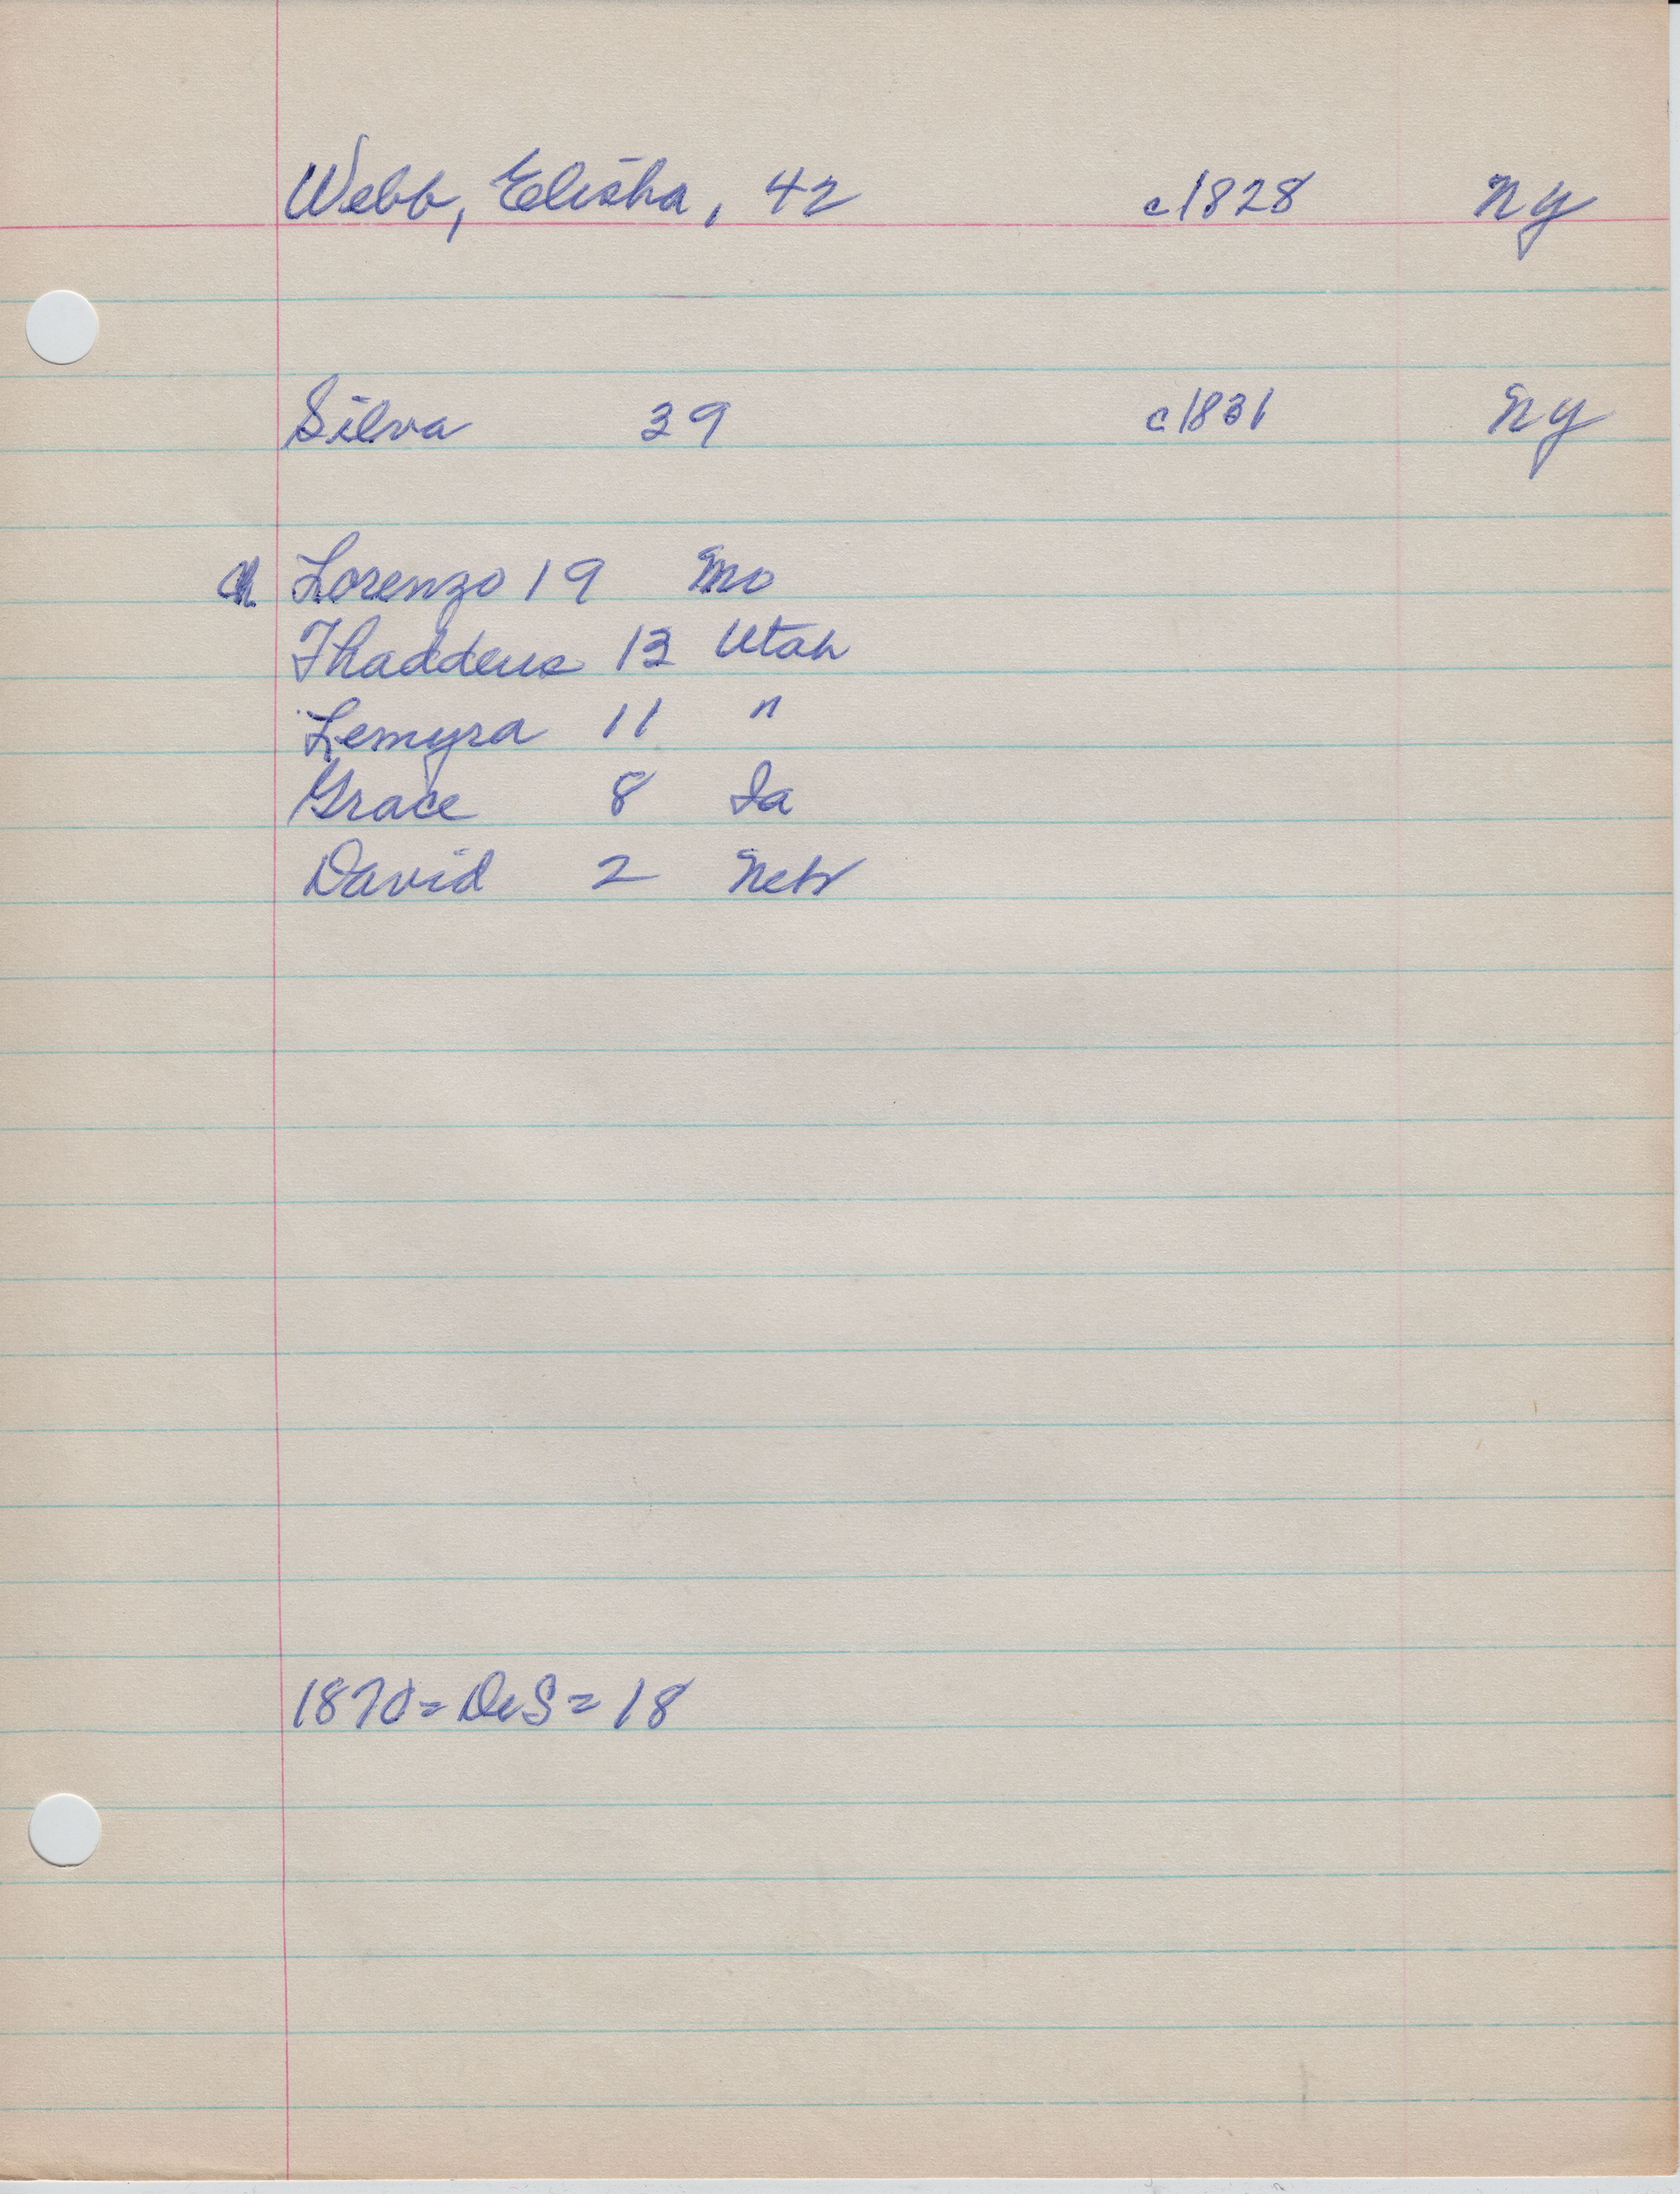 Webb, Elisha, 42 c1828 NY
Silva 39 c1831 NY
ch Lorenzo 19 Mo
Thaddeus 13 Utah
Lemyra 11 "
Grace 8 Ia
David 2 Neb
1870=DeS=18